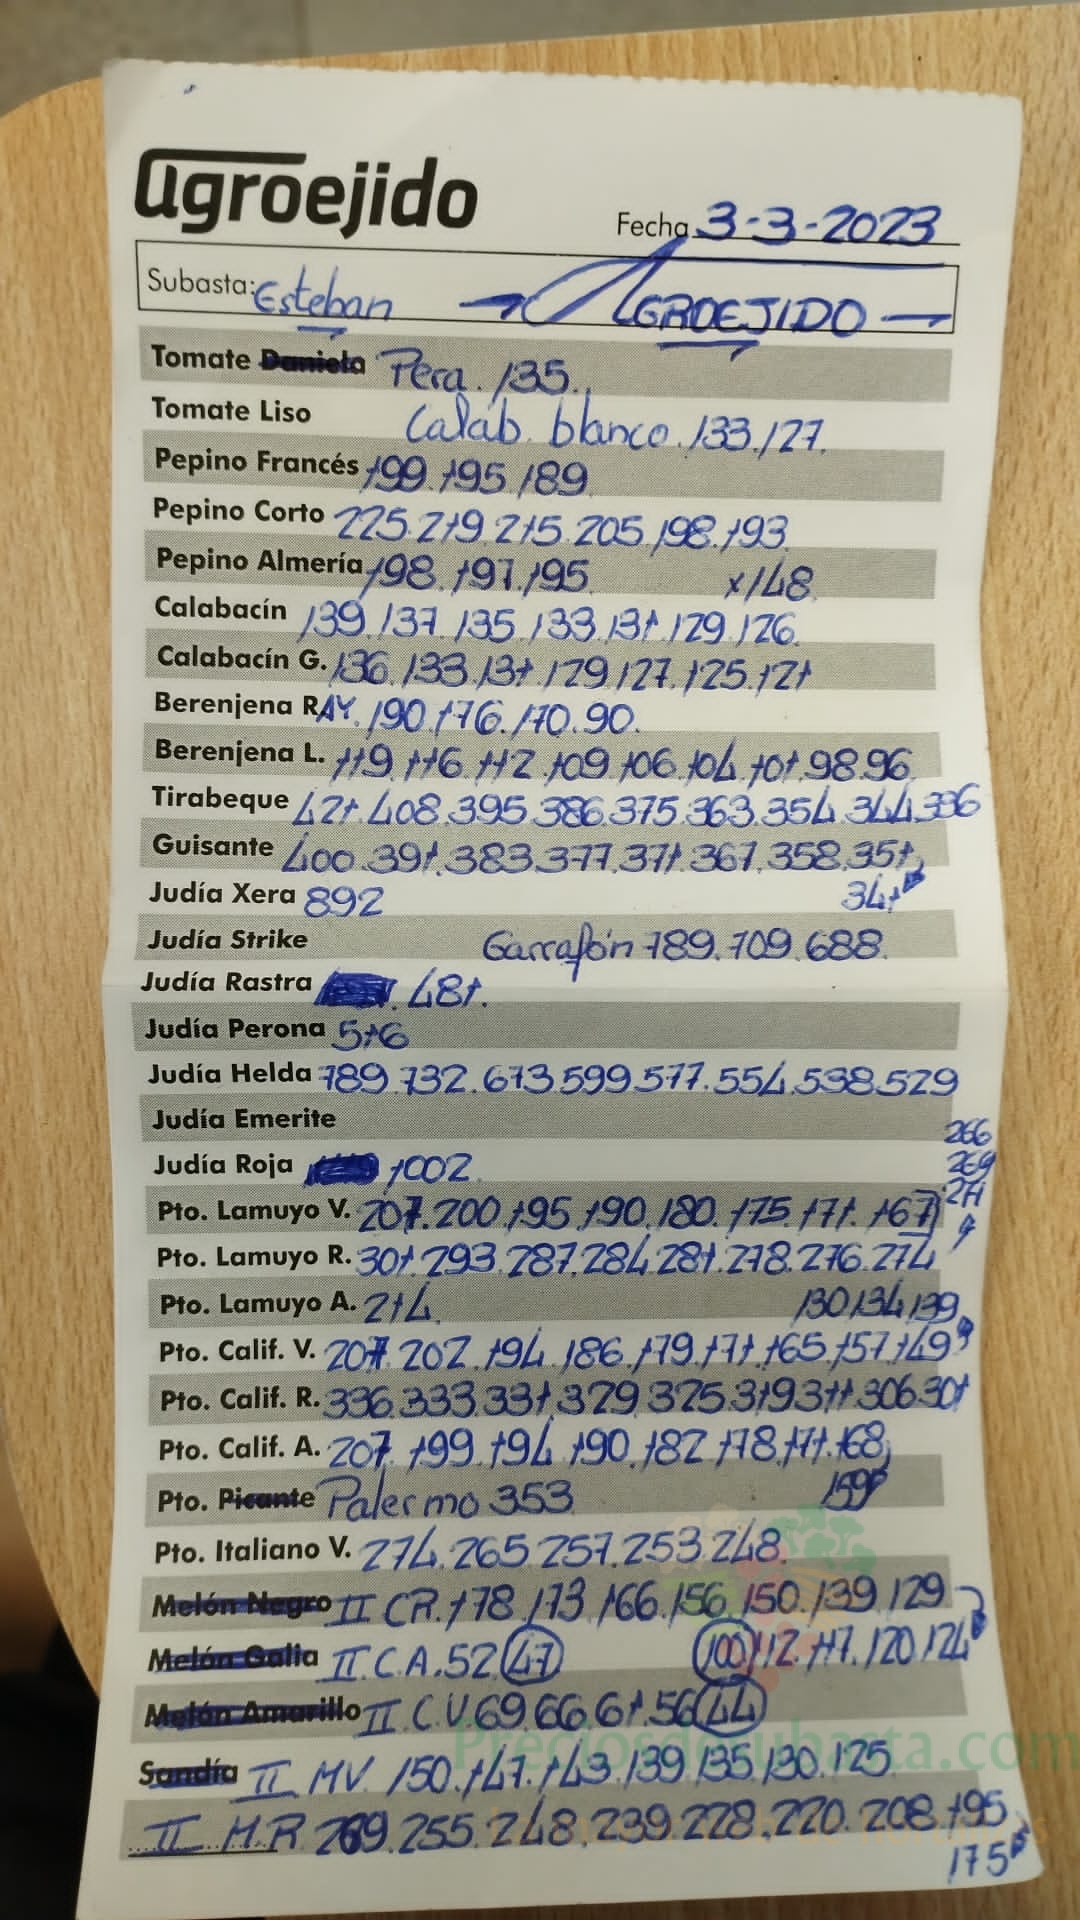 agroejido
Fecha 3-3-2023
Subasta: Esteban → AGROEJIDO →
Tomate Daniela Pera. 135.
Tomate Liso Calab. blanco. 133. 127.
Pepino Francés 199. 195. 189
Pepino Corto 225. 219. 215. 205. 198. 193
Pepino Almería 198. 197. 195. x148.
Calabacín 139. 137. 135. 133. 131. 129. 126.
Calabacín G. 136. 133. 131. 129. 127. 125. 121
Berenjena RAY. 190. 176. 170. 90.
Berenjena L. 119. 116. 112. 109. 106. 104. 101. 98. 96.
Tirabeque 421. 408. 395. 386. 375. 363. 354. 344. 336
Guisante 400. 391. 383. 377. 371. 367. 358. 351.
Judía Xera 892 341
Judía Strike Garrafón 789. 709. 688.
Judía Rastra 481.
Judía Perona 516
Judía Helda 789. 732. 673. 599. 577. 554. 538. 529
Judía Emerite
266
Judía Roja 1002. 269
271
Pto. Lamuyo V. 207. 200. 195. 190. 180. 175. 171. 167
Pto. Lamuyo R. 301. 293. 287. 284. 281. 278. 276. 274
Pto. Lamuyo A. 214. 130. 134. 139
Pto. Calif. V. 207. 202. 194. 186. 179. 171. 165. 157. 149
Pto. Calif. R. 336. 333. 331. 329. 325. 319. 311. 306. 301
Pto. Calif. A. 207. 199. 194. 190. 182. 178. 171. 168
Pto. Picante Palermo 353 159
Pto. Italiano V. 274. 265. 257. 253. 248.
Melón Negro II CR. 178. 173. 166. 156. 150. 139. 129
Melón Galia II. C.A. 52. 47 100. 112. 117. 120. 124
Melón Amarillo II C.V. 69. 66. 61. 56. 44
Preciosdesubasta.com
Sandía II MV. 150. 147. 143. 139. 135. 130. 125
II M.R 269. 255. 248. 239. 228. 220. 208. 195
175